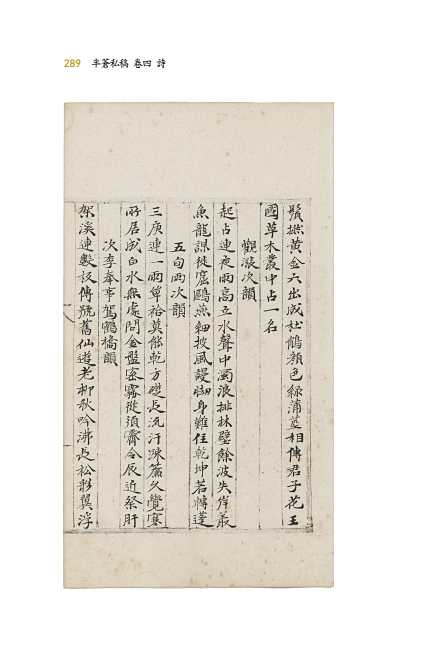 289 半蒼私稿 卷四 詩
鬚撚黃金六出成杜鵑顏色綠蒲莖相傳君子花王
國草木叢中占一名
觀漲次韻
起占連夜雨高立水聲中濁浪排林壁餘波失岸叢
魚龍謀徙窟鷗燕細披風謾擲身難任乾坤若轉蓬
五旬雨次韻
三庚連一雨算裕莫能乾方礎長流汗疎簾久覺寒
所居成白水無處問金盤蜜霧從須霽令辰近祭肝
次李奉事駕鶴橋韻
架溪連數板傳號舊仙遊老柳秋吟沸長松彩翼浮